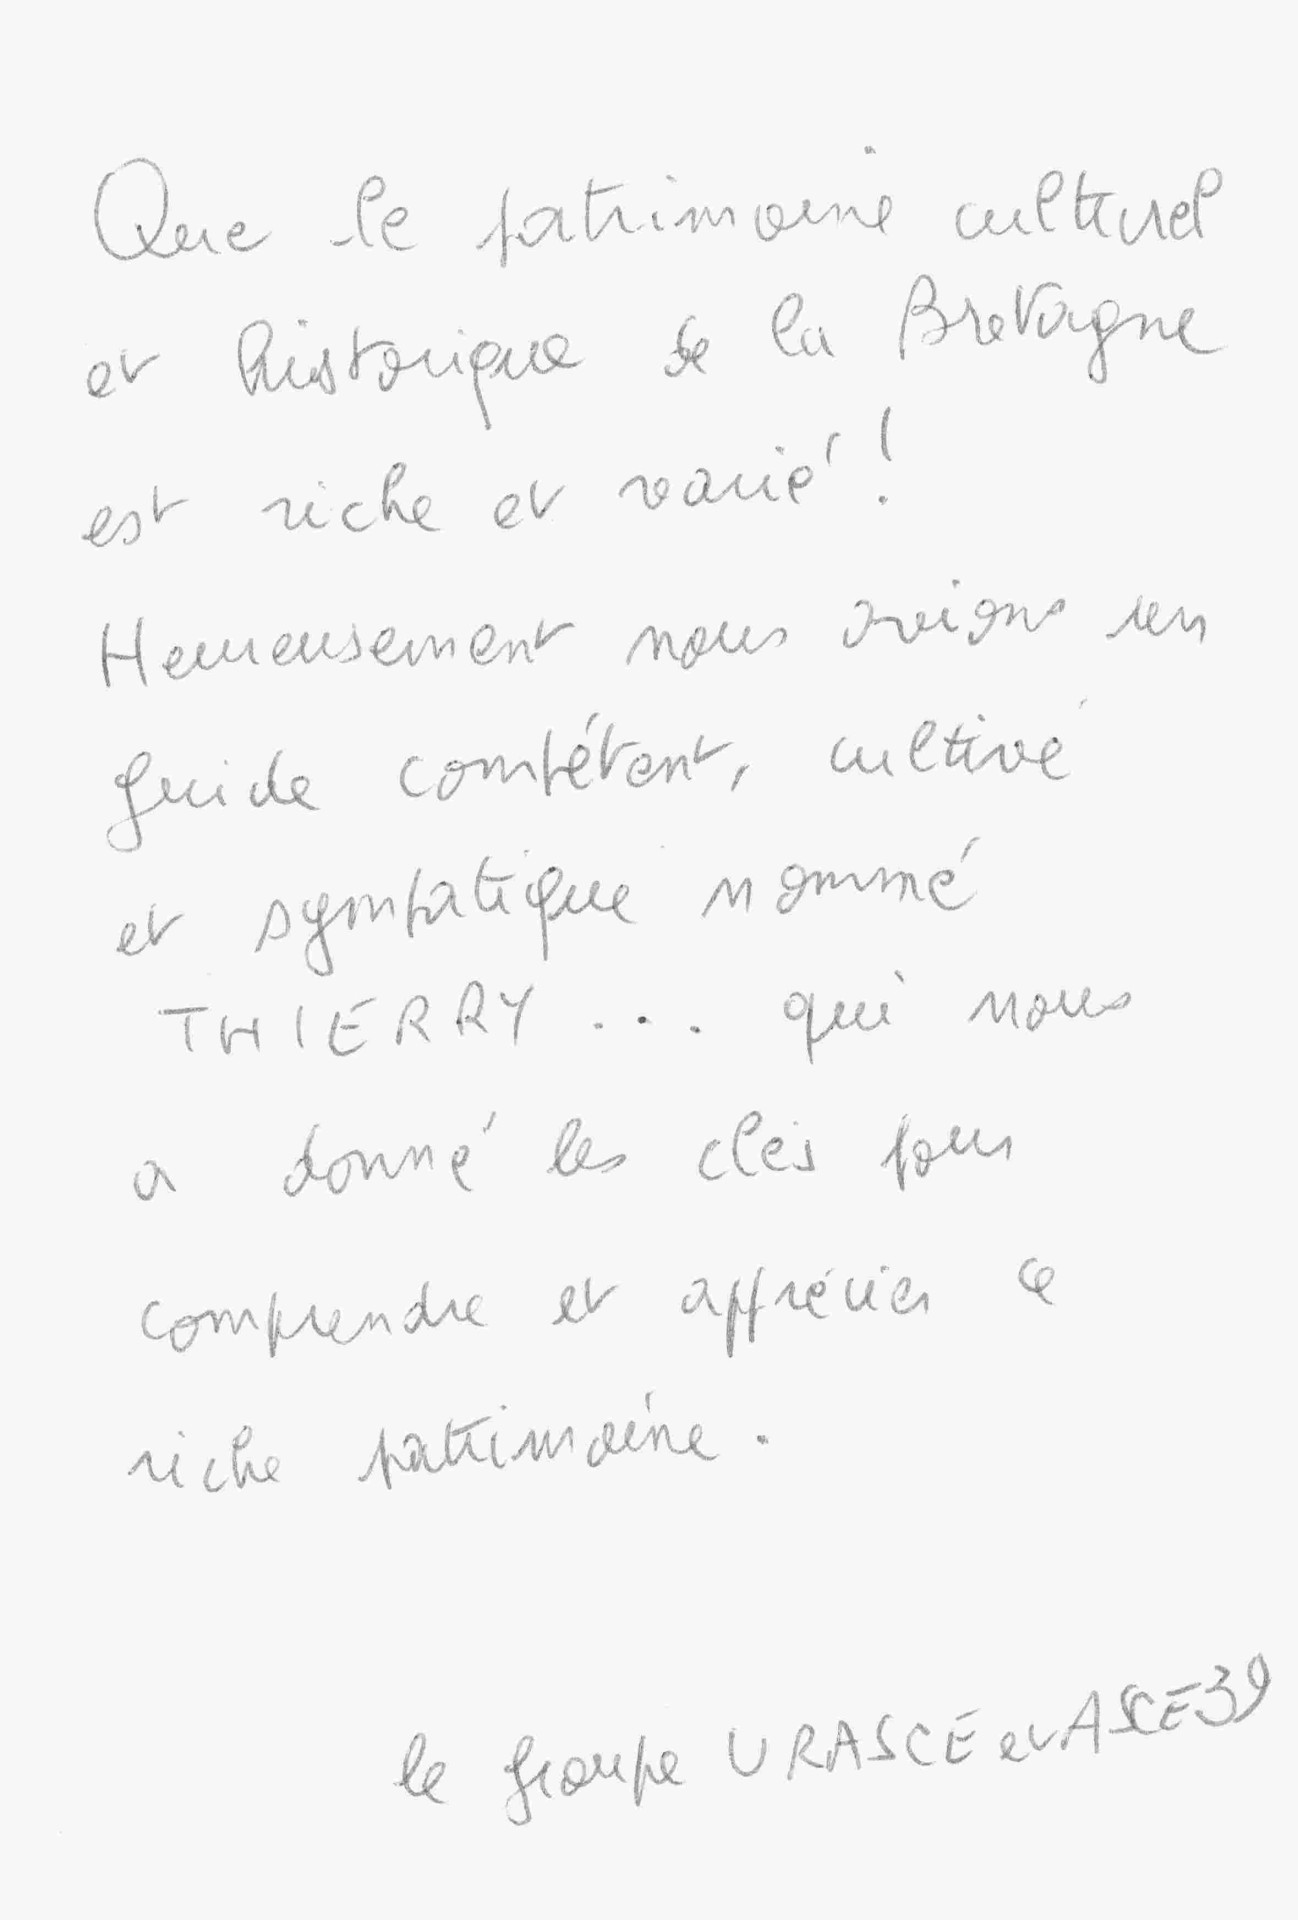 Que le patrimoine culturel
et historique de la Bretagne
est riche et varié !
Heureusement nous avions un
guide compétent, cultivé
et sympatique nommé
THIERRY ... qui nous
a donné les clés pour
comprendre et apprécier ce
riche patrimoine .
le groupe URASCE et ASCE39